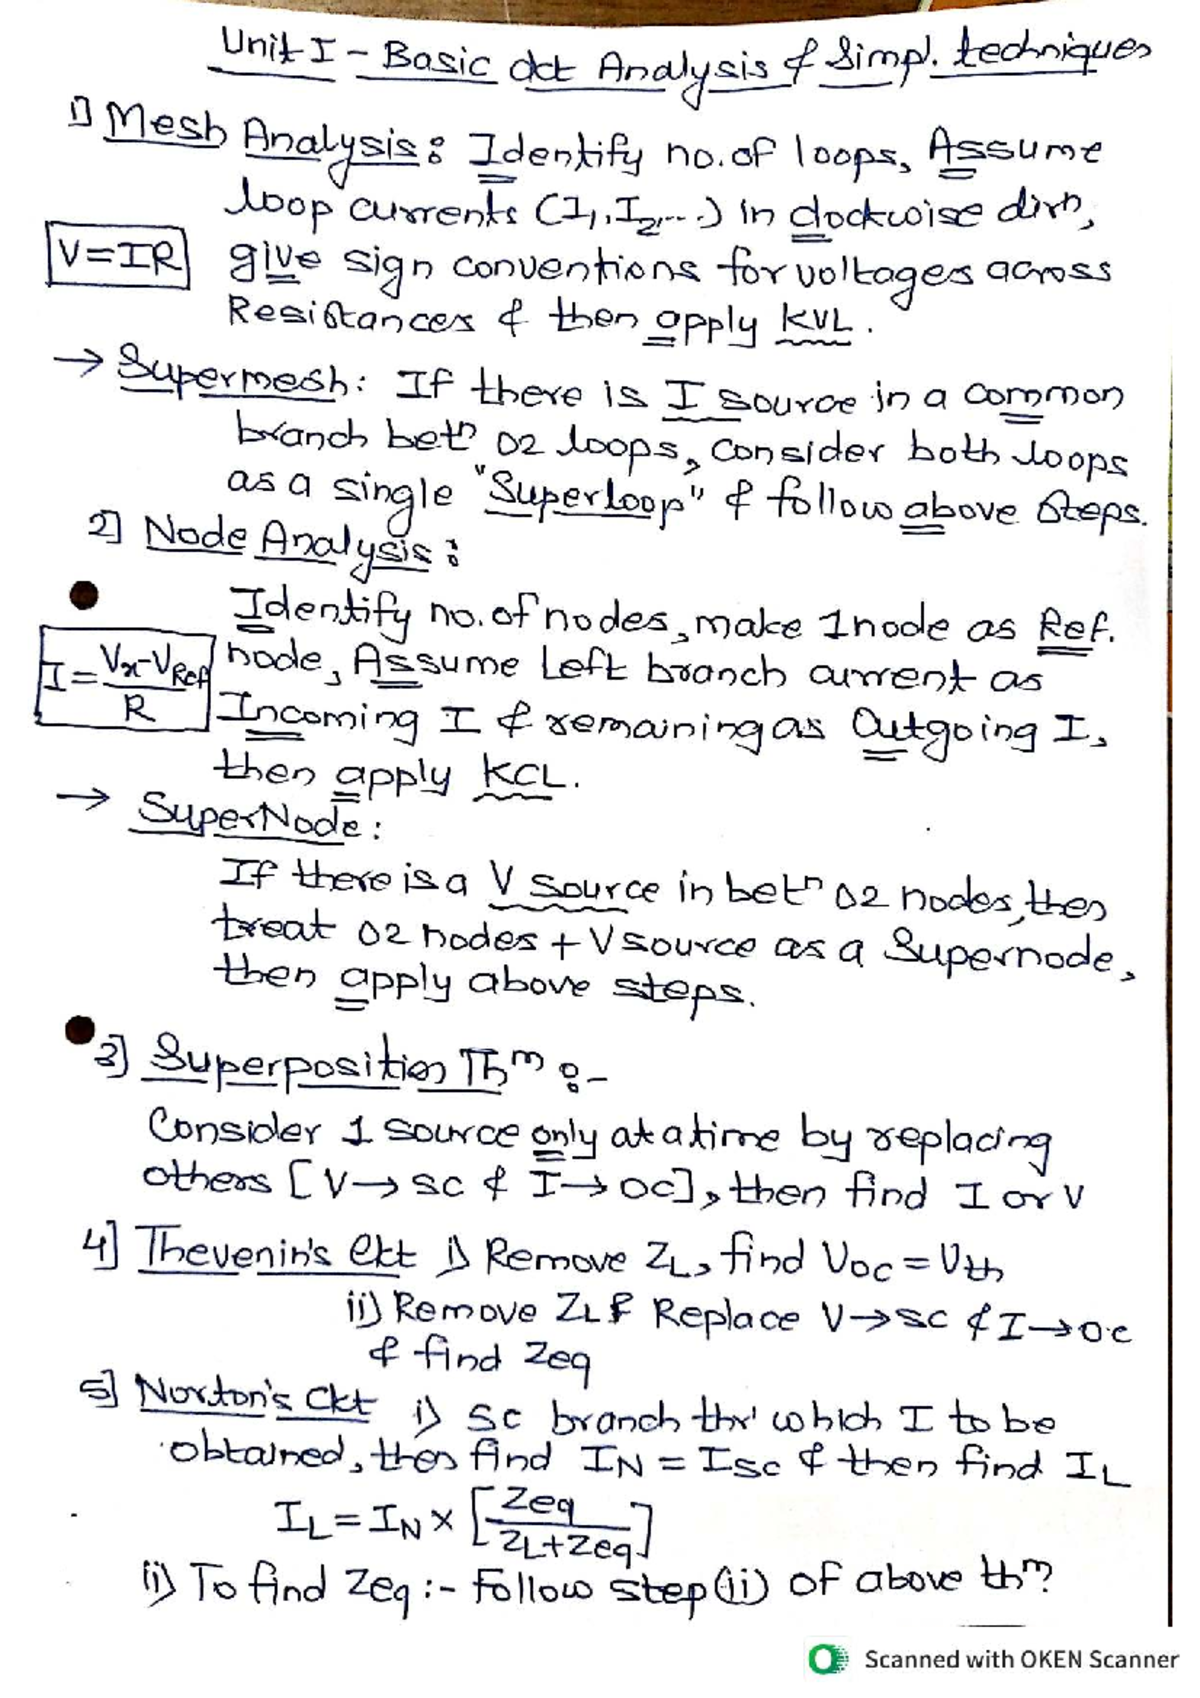 Unit I - Basic ckt Analysis & Simpl. techniques
1) Mesh Analysis: Identify no. of loops, Assume
loop currents (I1, I2, ...) in clockwise dirn,
V = IR
give sign conventions for voltages across
Resistances & then apply KVL.
→ Supermesh: If there is I source in a common
branch betn 02 loops, consider both loops
as a single "Superloop" & follow above steps.
2] Node Analysis:
Identify no. of nodes, make 1 node as Ref.
I = (Vx - VRef) / R
node, Assume Left branch current as
Incoming I & remaining as Outgoing I,
then apply KCL.
→ SuperNode:
If there is a V source in betn 02 nodes, then
treat 02 nodes + V source as a Supernode,
then apply above steps.
3] Superposition Thm :-
Consider 1 source only at a time by replacing
others [V → SC & I → OC], then find I or V
4] Thevenin's Ckt i) Remove ZL, find VOC = Vth
ii) Remove ZL & Replace V → SC & I → OC
& find Zeq
5] Norton's Ckt i) SC branch thr' which I to be
obtained, then find IN = ISC & then find IL
IL = IN x [Zeq / (ZL + Zeq)]
ii) To find Zeq :- Follow step (ii) of above thm
Scanned with OKEN Scanner